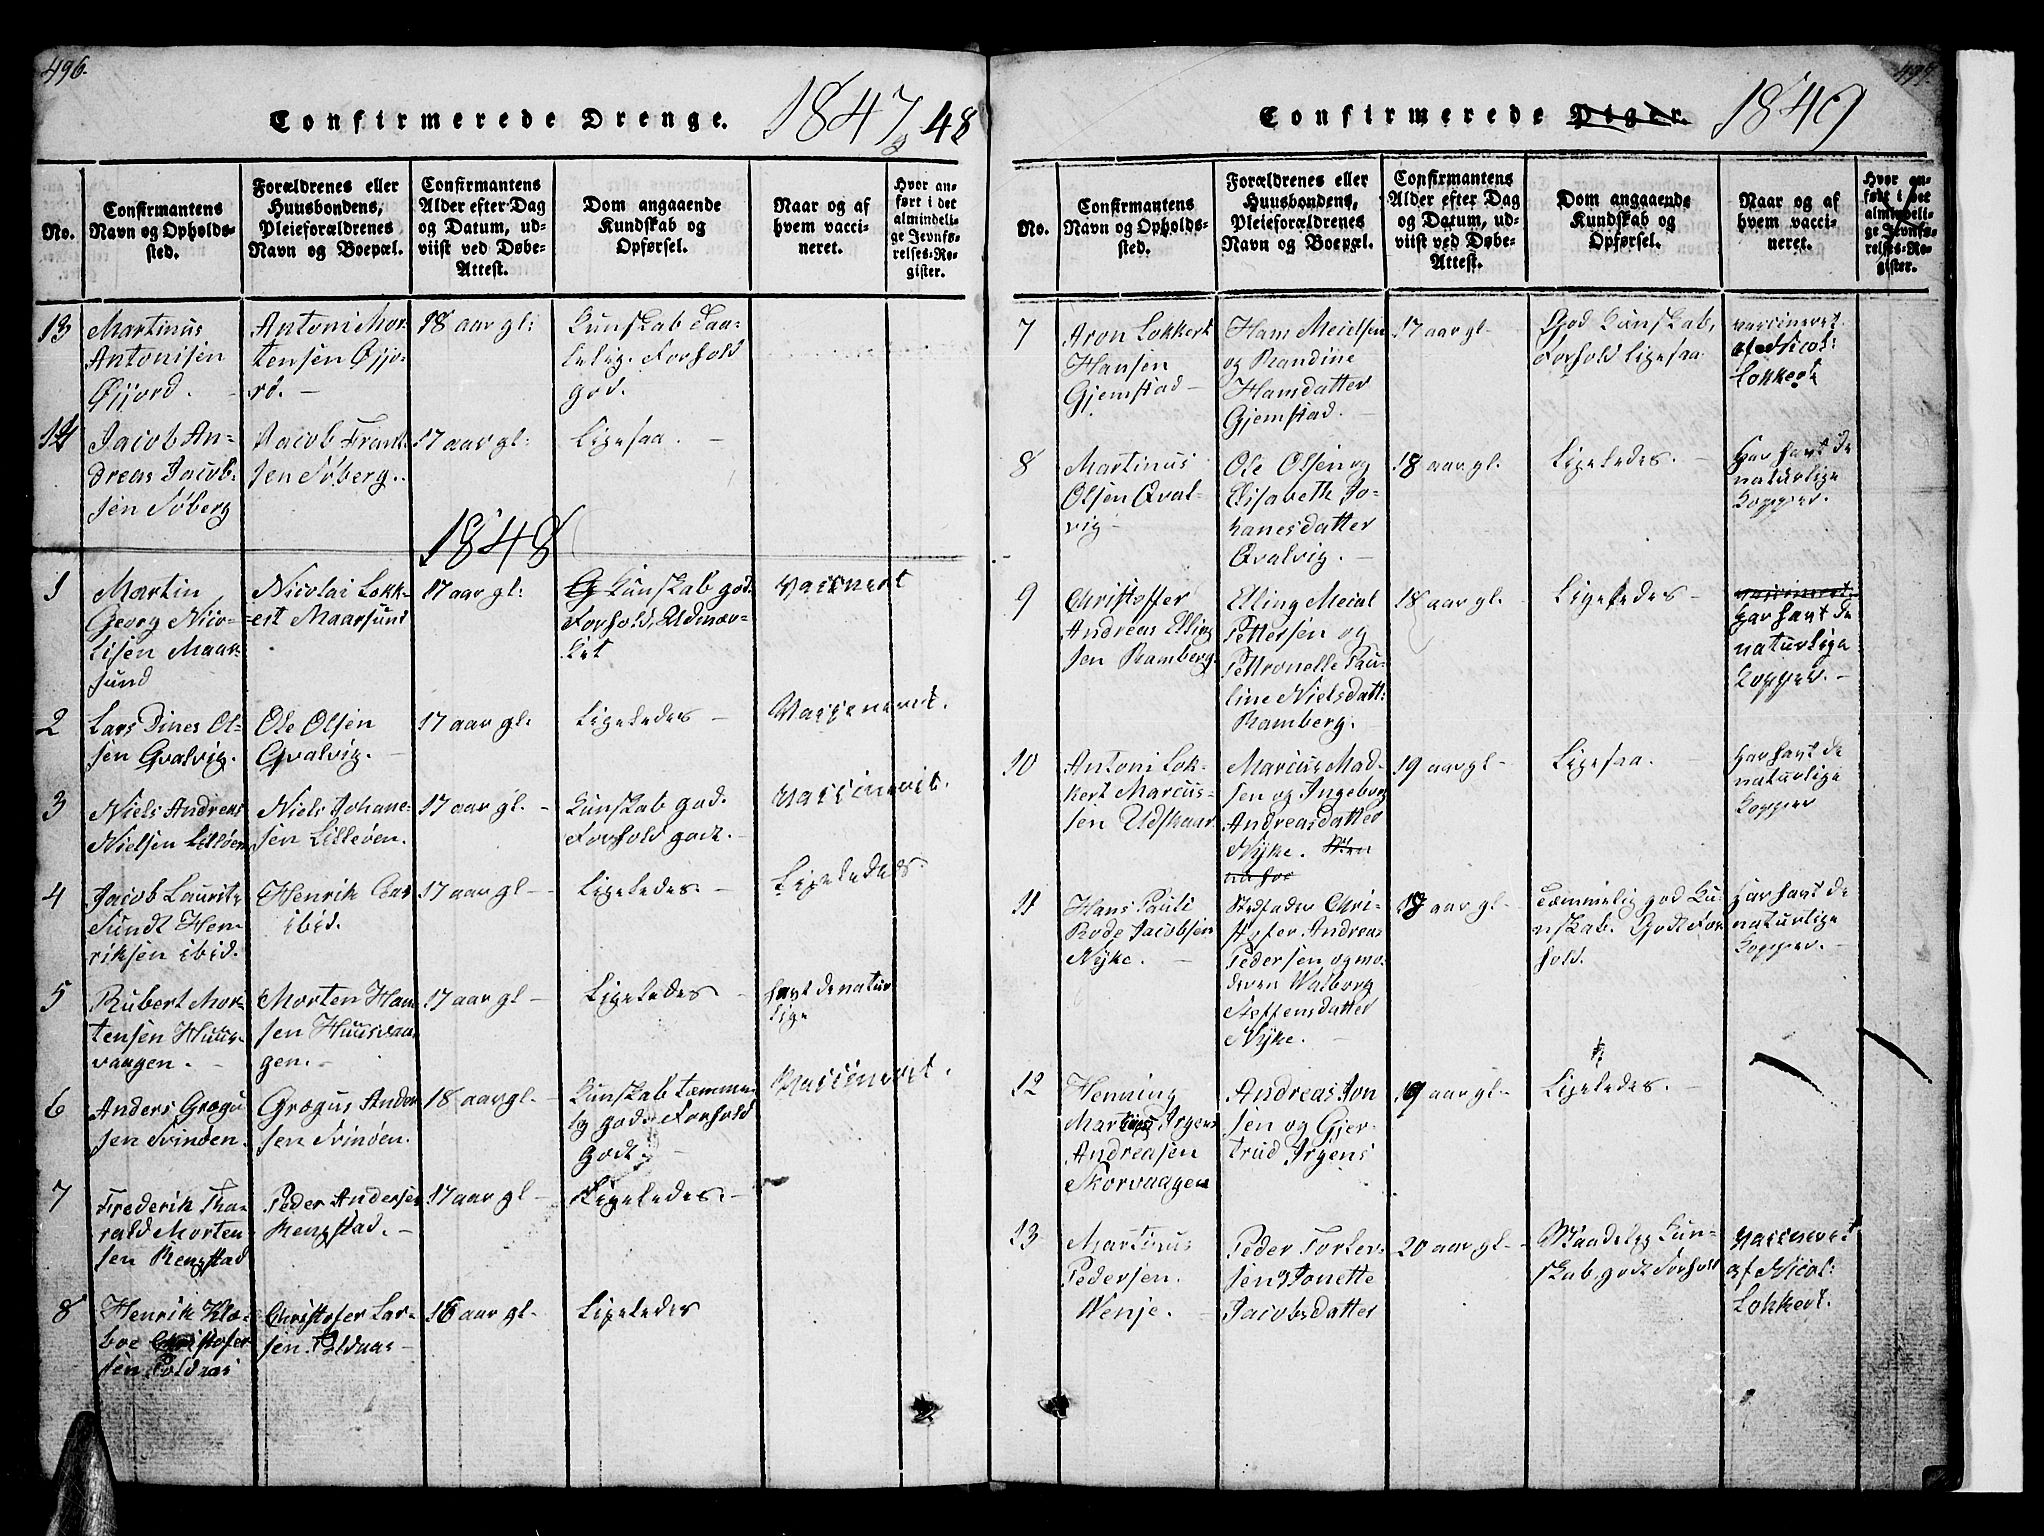 496.
Confirmerede Drenge. 1847 48
No.
Confirmantens
Navn og Opholds-
sted.
Forældrenes eller
Huusbondens,
Pleieforældrenes
Navn og Boepæl.
Confirmantens
Alder efter Dag
og Datum, ud-
viist ved Døbe-
Attest.
Dom angaaende
Kundskab og
Opførsel.
Naar og af
hvem vacci-
neret.
Hvor an-
ført i det
almindeli-
ge Jevnfø-
relses-Re-
gister.
13
Martinus
Antonisen
Øjjord.
Antoni Mor-
tensen Øjjo-
rd.
18 aar gl:
Kunskab Taa-
lelig. Forhold
god.
14
Jacob An-
dreas Jacob-
sen Søberg
Jacob Frant-
sen Søberg.
17 aar gl:
Ligesaa.
1848
1
Martin
Georg Nico-
lisen Maar-
sund
Nicolai Lokk-
ert Maarsund
17 aar gl:
Kunskab god.
Forhold, Udmær-
ket
Vaccineret
2
Lars Dines Ol-
sen Qvalvig.
Ole Olsen
Qvalvig.
17 aar gl:
Ligeledes
Vaccineret.
3
Niels Andreas
Nielsen Lilløen
Niels Johane-
sen Lilleøen.
17 aar gl.
Kunskab god.
Forhold godt.
Vaccineret.
4
Jacob Lauritz
Sundt Hen-
riksen ibid.
Henrik
ibid.
17 aar gl
Ligeledes.
Ligeledes.
5
Rubert Mor-
tensen Huus-
vaagen.
Morten Han
sen Huusvaa-
gen.
17 aar gl
Ligeledes
havt de natur
lige
6
Anders Grægu
sen Svinøen.
Grægus Ander
sen Svinøen.
18 aar gl
Kunskab tæmme-
lig god. Forhold
godt.
Vaccineret.
7
Frederik Tha-
rald Morten-
sen Rengstad
Peder Andersen
Rengstad.
17 aar gl
Ligeledes.
8
Henrik Klæ-
boe Christofer
sen Poldaas
Christofer Lar-
sen Poldaas
16 aar gl.
Ligeledes
497.
Confirmerede Piger. 1849
No.
Confirmantens
Navn og Opholds-
sted.
Forældrenes eller
Huusbondens,
Pleieforældrenes
Navn og Boepæl.
Confirmantens
Alder efter Dag
og Datum, ud-
viist ved Døbe-
Attest.
Dom angaaende
Kundskab og
Opførsel.
Naar og af
hvem vacci-
neret.
Hvor an-
ført i det
almindeli-
ge Jevnfø-
relses-Re-
gister.
7
Aron Lokkert
Hansen
Gjemstad
Hans Meielsen
og Randine
Hansdatter
Gjemstad.
17 aar gl
God Kunskab,
Forhold Ligesaa
vaccineret
af Nicol:
Lokkert
8
Martinus
Olsen Qval-
vig
Ole Olsen og
Elisabeth Jo-
hanesdatter
Qvalvig.
18 aar gl.
Ligeledes.
har havt de
naturlige
Kopper.
9
Christoffer
Andreas Elling
sen Ramberg.
Elling Meiel
Pettersen og
Pettronelle Pau-
line Nielsdatt:
Ramberg.
18 aar gl
Ligeledes
vaccineret.
har havt de
naturlige
Kopper.
10
Antoni Lok-
kert Marcus-
sen Udskaar
Marcus Mad-
sen og Ingeborg
Andreasdatter
Nyke.
19 aar gl
Ligesaa.
har havt de
naturlige
Kopper
11
Hans Pauli
Rode Jacobsen
Nyke.
Stedfader Chri-
stofer Andreas
Pedersen og mo-
deren Walborg
Steffensdatter
Nyke.
18 aar gl
Tæmmelig god Ku-
nskab. Godt For
hold.
har havt de
naturlige
Kopper.
12
Henning
Martinus Irgens
Andreasen
Skorvaagen
Andreas Jon
sen og Gjer-
trud Irgens
19 aar gl
Ligeledes.
13
Martinus
Pedersen.
Wenje.
Peder Torker-
sen og Jonette
Jacobsdatter
20 aar gl
Maadelig Kun-
skab, godt Forhold
Vaccineret
af Nicol:
Lokkert.